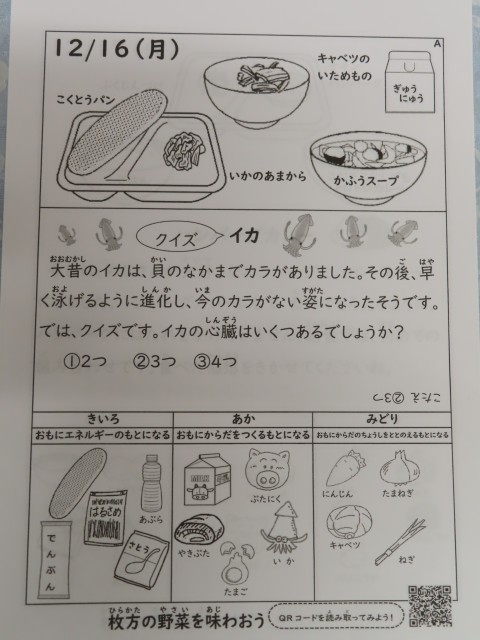 12/16(月)
A
キャベツの
いためもの
ぎゅう
にゅう
こくとうパン
いかのあまから
かふうスープ
クイズ
イカ
大昔のイカは、貝のなかまでカラがありました。その後、早
く泳げるように進化し、今のカラがない姿になったそうです。
では、クイズです。イカの心臓はいくつあるでしょうか?
①2つ ②3つ ③4つ
こたえ ②3つ
きいろ
おもにエネルギーのもとになる
あか
おもにからだをつくるもとになる
みどり
おもにからだのちょうしをととのえるもとになる
はるさめ
あぶら
でんぷん
さとう
MILK
ぶたにく
やきぶた
いか
たまご
にんじん
たまねぎ
キャベツ
ねぎ
枚方の野菜を味わおう
QRコードを読み取ってみよう!